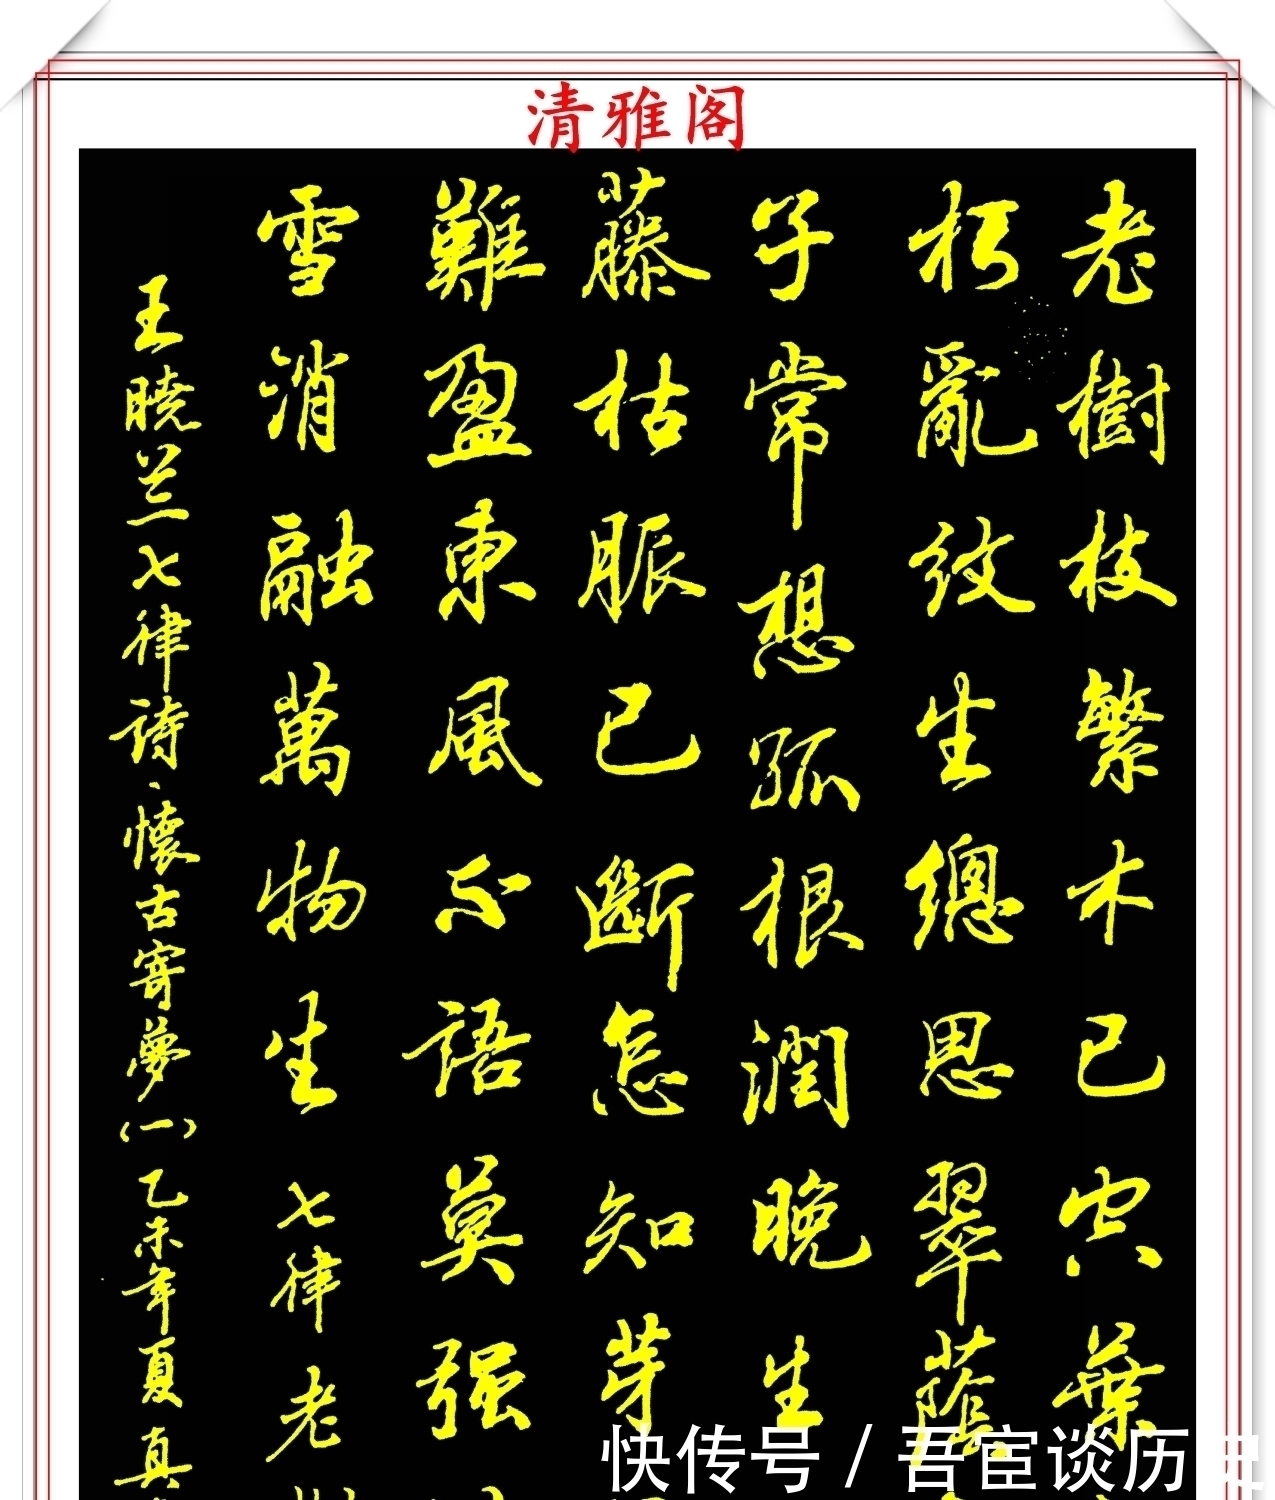 清雅阁
老樹枝繁木已穴葉
朽亂纹生總思翠蔭
子常想孤根潤晚生
藤枯脈已斷怎知芽
難盈東風不語莫强
雪消融萬物生七律老樹
王曉兰七律詩、懷古寄夢(一)乙未年夏真
快传号/吾宦谈历史